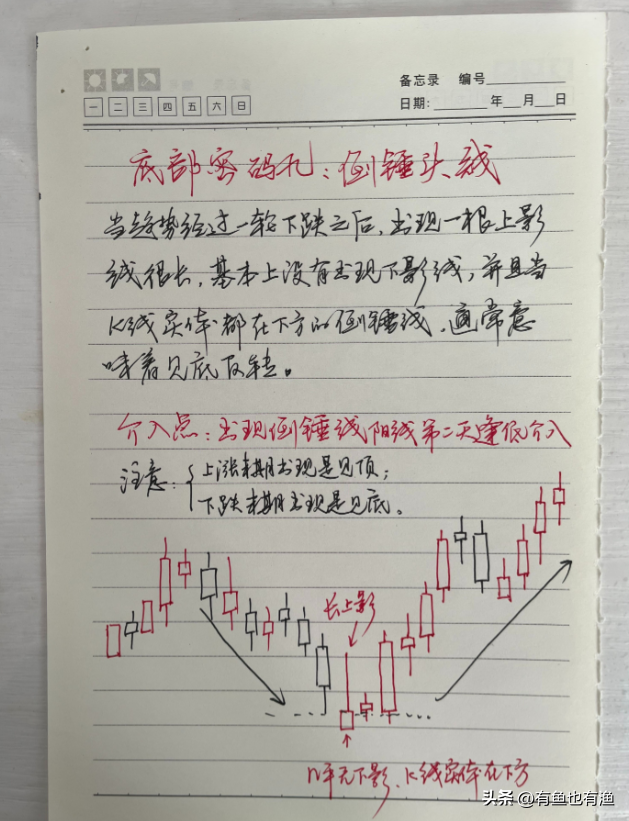 备忘录 编号
一 二 三 四 五 六 日
日期: 年 月 日
底部密码九:倒锤头线
当趋势经过一轮下跌之后,出现一根上影
线很长,基本上没有出现下影线,并且当
K线实体都在下方的倒锤线,通常意
味着见底反转。
介入点:出现倒锤线阳线第二天逢低介入
注意:
上涨末期出现是见顶;
下跌末期出现是见底。
长上影
几乎无下影、K线实体在下方
头条 @有鱼也有渔